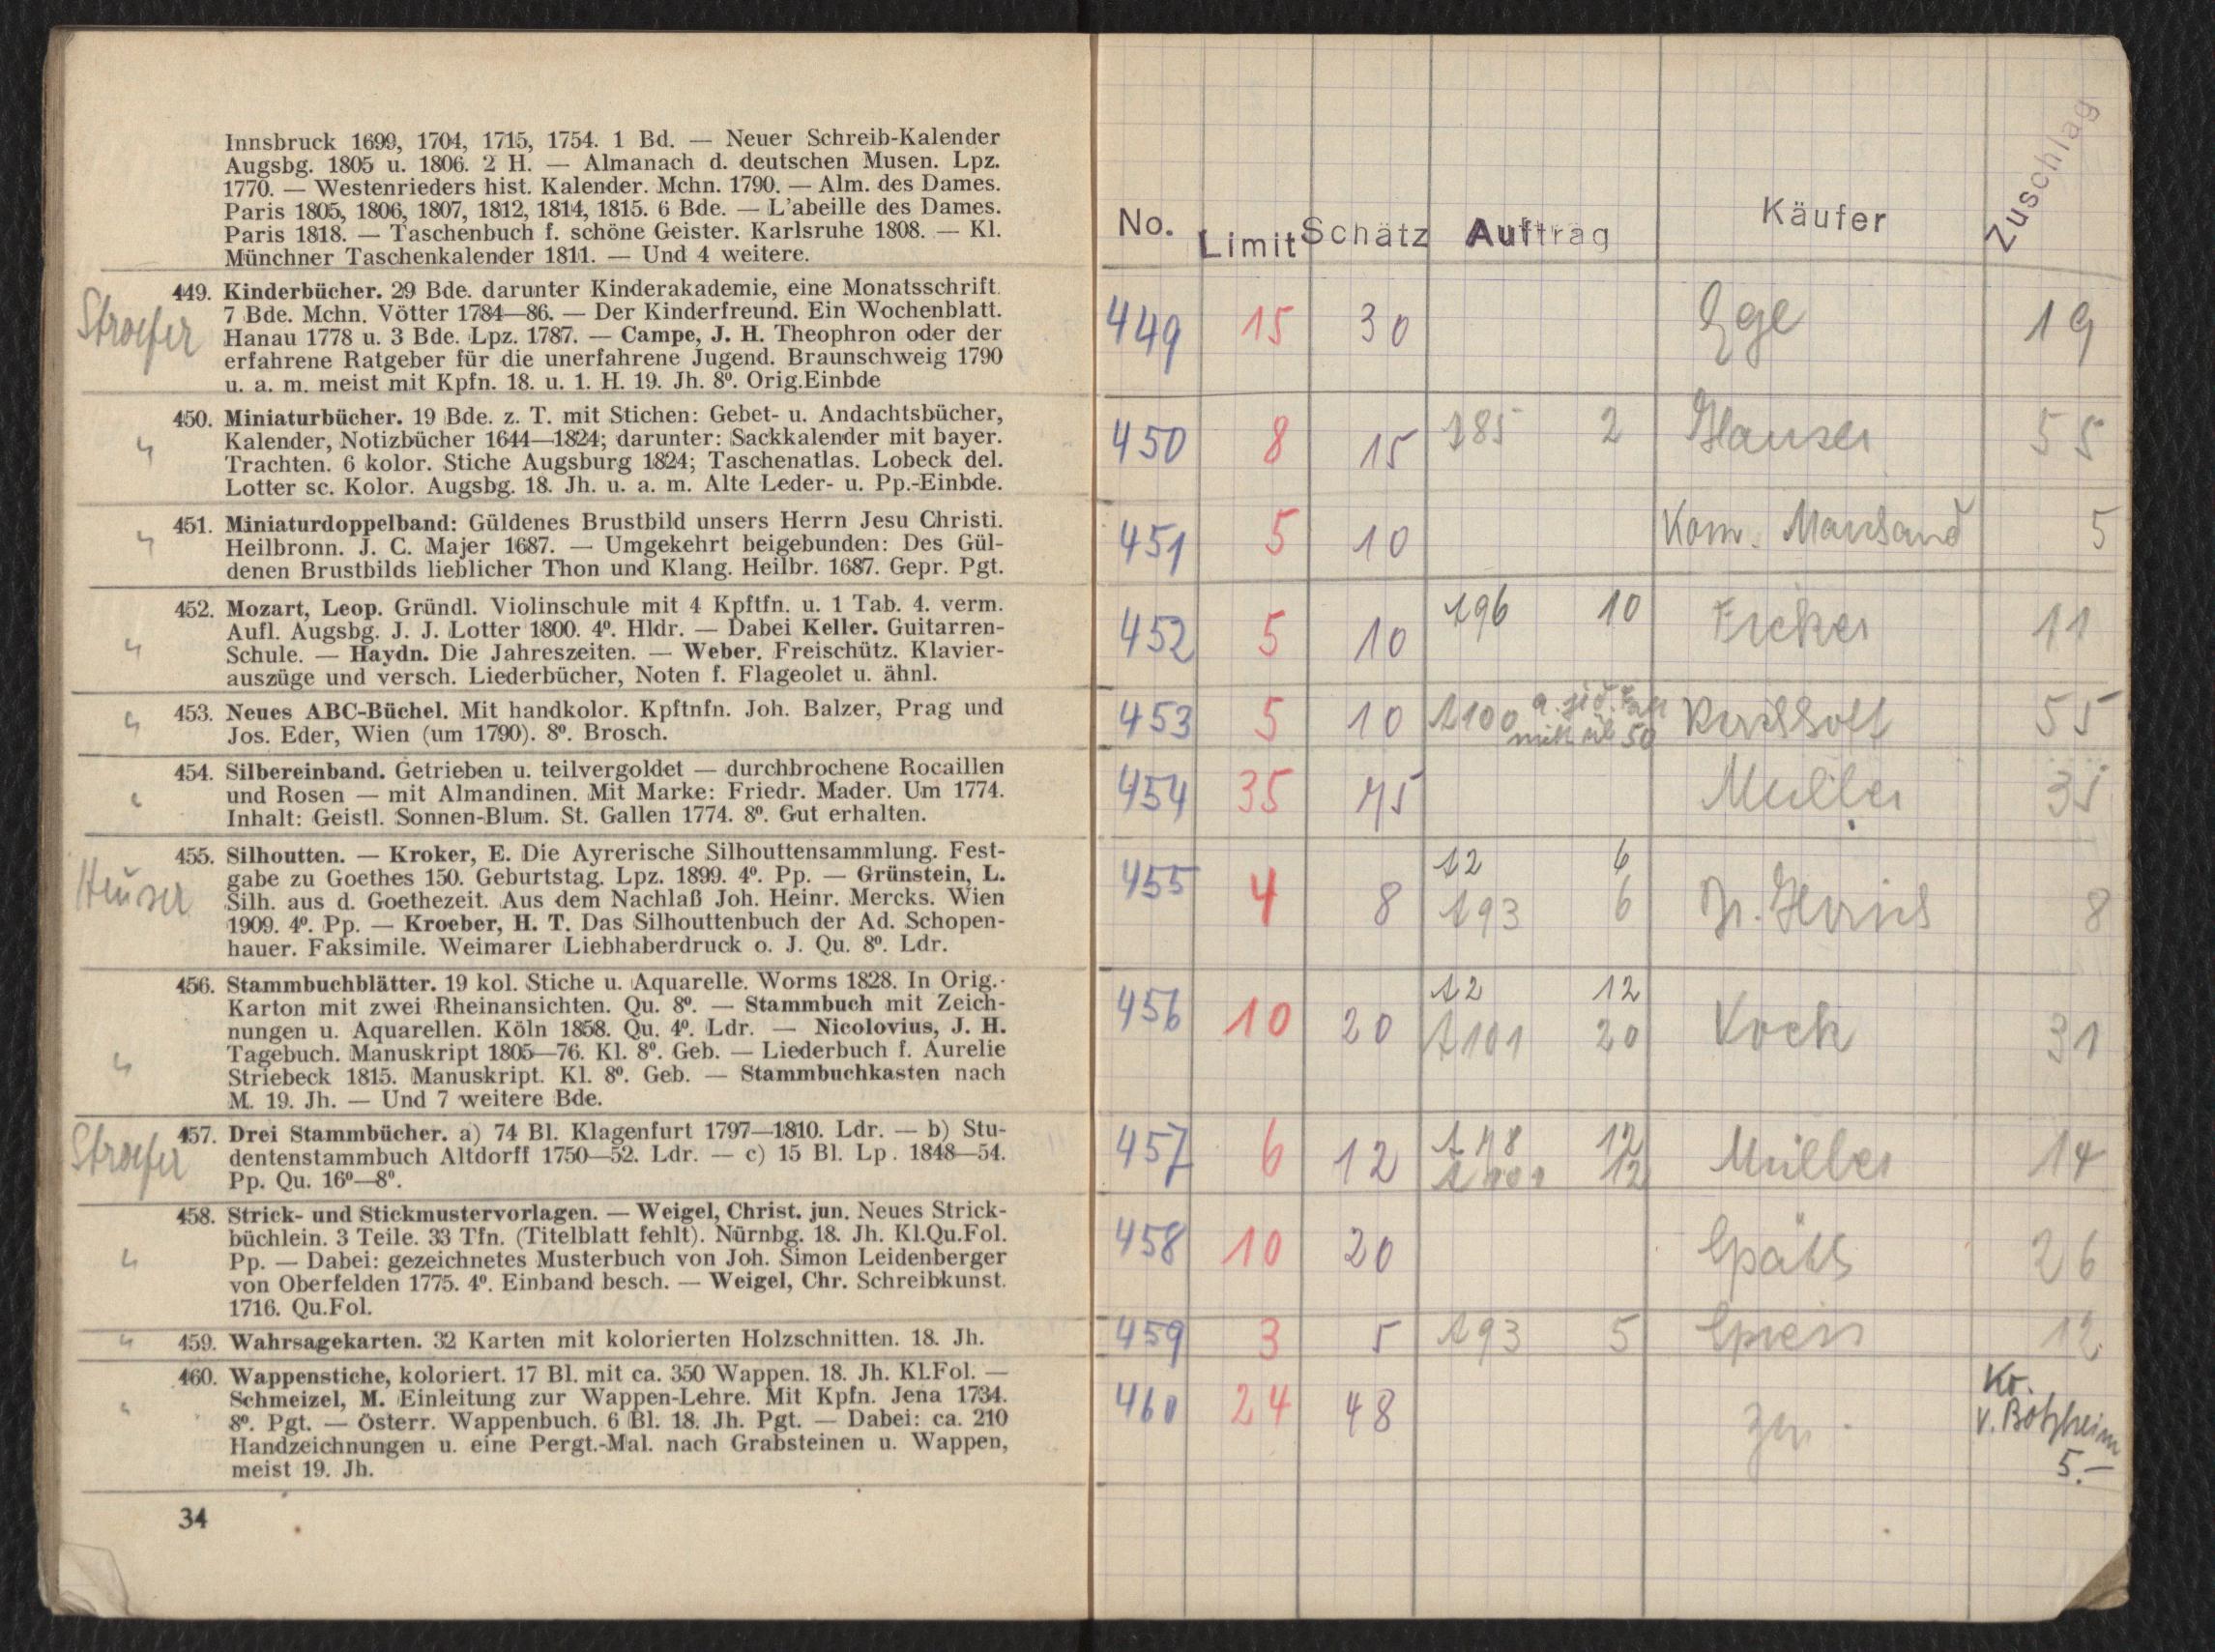 Innsbruck 1699, 1704, 1715, 1754. 1 Bd. — Neuer Schreib-Kalender
Augsbg. 1805 u. 1806. 2 H. — Almanach d. deutschen Musen. Lpz.
1770. — Westenrieders hist. Kalender. Mchn. 1790. — Alm. des Dames.
Paris 1805, 1806, 1807, 1812, 1814, 1815. 6 Bde. — L'abeille des Dames.
Paris 1818. — Taschenbuch f. schöne Geister. Karlsruhe 1808. — Kl.
Münchner Taschenkalender 1811. — Und 4 weitere.
Stroefer
449. Kinderbücher. 29 Bde. darunter Kinderakademie, eine Monatsschrift.
7 Bde. Mchn. Vötter 1784—86. — Der Kinderfreund. Ein Wochenblatt.
Hanau 1778 u. 3 Bde. Lpz. 1787. — Campe, J. H. Theophron oder der
erfahrene Ratgeber für die unerfahrene Jugend. Braunschweig 1790
u. a. m. meist mit Kpfn. 18. u. 1. H. 19. Jh. 8⁰. Orig.Einbde
450. Miniaturbücher. 19 Bde. z. T. mit Stichen: Gebet- u. Andachtsbücher,
Kalender, Notizbücher 1644—1824; darunter: Sackkalender mit bayer.
Trachten. 6 kolor. Stiche Augsburg 1824; Taschenatlas. Lobeck del.
Lotter sc. Kolor. Augsbg. 18. Jh. u. a. m. Alte Leder- u. Pp.-Einbde.
451. Miniaturdoppelband: Güldenes Brustbild unsers Herrn Jesu Christi.
Heilbronn. J. C. Majer 1687. — Umgekehrt beigebunden: Des Gül-
denen Brustbilds lieblicher Thon und Klang. Heilbr. 1687. Gepr. Pgt.
452. Mozart, Leop. Gründl. Violinschule mit 4 Kpftfn. u. 1 Tab. 4. verm.
Aufl. Augsbg. J. J. Lotter 1800. 4⁰. Hldr. — Dabei Keller. Guitarren-
Schule. — Haydn. Die Jahreszeiten. — Weber. Freischütz. Klavier-
auszüge und versch. Liederbücher, Noten f. Flageolet u. ähnl.
453. Neues ABC-Büchel. Mit handkolor. Kpftnfn. Joh. Balzer, Prag und
Jos. Eder, Wien (um 1790). 8⁰. Brosch.
454. Silbereinband. Getrieben u. teilvergoldet — durchbrochene Rocaillen
und Rosen — mit Almandinen. Mit Marke: Friedr. Mader. Um 1774.
Inhalt: Geistl. Sonnen-Blum. St. Gallen 1774. 8⁰. Gut erhalten.
Heuser
455. Silhoutten. — Kroker, E. Die Ayrerische Silhouttensammlung. Fest-
gabe zu Goethes 150. Geburtstag. Lpz. 1899. 4⁰. Pp. — Grünstein, L.
Silh. aus d. Goethezeit. Aus dem Nachlaß Joh. Heinr. Mercks. Wien
1909. 4⁰. Pp. — Kroeber, H. T. Das Silhouttenbuch der Ad. Schopen-
hauer. Faksimile. Weimarer Liebhaberdruck o. J. Qu. 8⁰. Ldr.
456. Stammbuchblätter. 19 kol. Stiche u. Aquarelle. Worms 1828. In Orig.-
Karton mit zwei Rheinansichten. Qu. 8⁰. — Stammbuch mit Zeich-
nungen u. Aquarellen. Köln 1858. Qu. 4⁰. Ldr. — Nicolovius, J. H.
Tagebuch. Manuskript 1805—76. Kl. 8⁰. Geb. — Liederbuch f. Aurelie
Striebeck 1815. Manuskript. Kl. 8⁰. Geb. — Stammbuchkasten nach
M. 19. Jh. — Und 7 weitere Bde.
Stroefer
457. Drei Stammbücher. a) 74 Bl. Klagenfurt 1797—1810. Ldr. — b) Stu-
dentenstammbuch Altdorff 1750—52. Ldr. — c) 15 Bl. Lp. 1848—54.
Pp. Qu. 16⁰—8⁰.
458. Strick- und Stickmustervorlagen. — Weigel, Christ. jun. Neues Strick-
büchlein. 3 Teile. 33 Tfn. (Titelblatt fehlt). Nürnbg. 18. Jh. Kl.Qu.Fol.
Pp. — Dabei: gezeichnetes Musterbuch von Joh. Simon Leidenberger
von Oberfelden 1775. 4⁰. Einband besch. — Weigel, Chr. Schreibkunst.
1716. Qu.Fol.
459. Wahrsagekarten. 32 Karten mit kolorierten Holzschnitten. 18. Jh.
460. Wappenstiche, koloriert. 17 Bl. mit ca. 350 Wappen. 18. Jh. Kl.Fol. —
Schmeizel, M. Einleitung zur Wappen-Lehre. Mit Kpfn. Jena 1734.
8⁰. Pgt. — Österr. Wappenbuch. 6 Bl. 18. Jh. Pgt. — Dabei: ca. 210
Handzeichnungen u. eine Pergt.-Mal. nach Grabsteinen u. Wappen,
meist 19. Jh.
34
No. Limit Schätz Auftrag Käufer Zuschlag
449 15 30 Ege 19
450 8 15 185 2 Hauser 55
451 5 10 Kom. 5
452 5 10 196 10 11
453 5 10 50 55
454 35 75 Müller 35
455 4 8 12 6
193 6 8
456 10 20 12 12
1101 20 Koch 31
457 6 12 178 12
12 Müller 14
458 10 20 Späth 26
459 3 5 193 5 Spiess 12
460 24 48 zur. Kr.
v. Botzheim
5.—